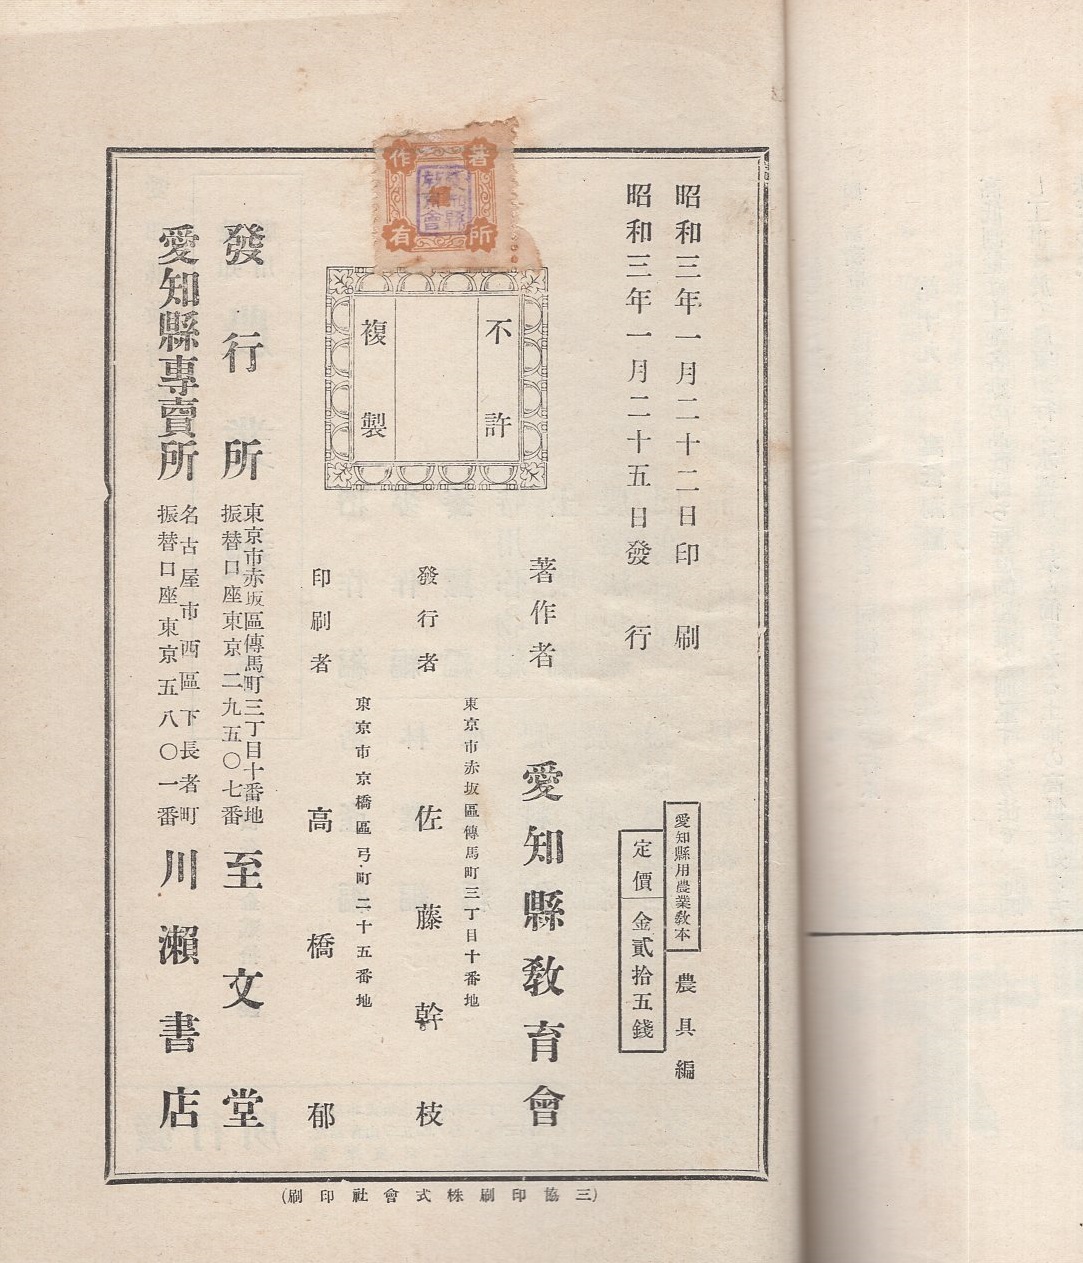 昭和三年一月二十二日印刷
昭和三年一月二十五日發行
愛知縣用農業教本 農具編
定價 金貳拾五錢
著作所有
愛知縣教育會
不許
複製
著作者 愛知縣教育會
東京市赤坂區傳馬町三丁目十番地
發行者 佐藤幹枝
東京市京橋區弓町二十五番地
印刷者 高橋郁
發行所 東京市赤坂區傳馬町三丁目十番地
振替口座東京二九五〇七番 至文堂
愛知縣專賣所 名古屋市西區下長者町
振替口座東京五八〇一番 川瀨書店
(三協印刷株式會社印刷)